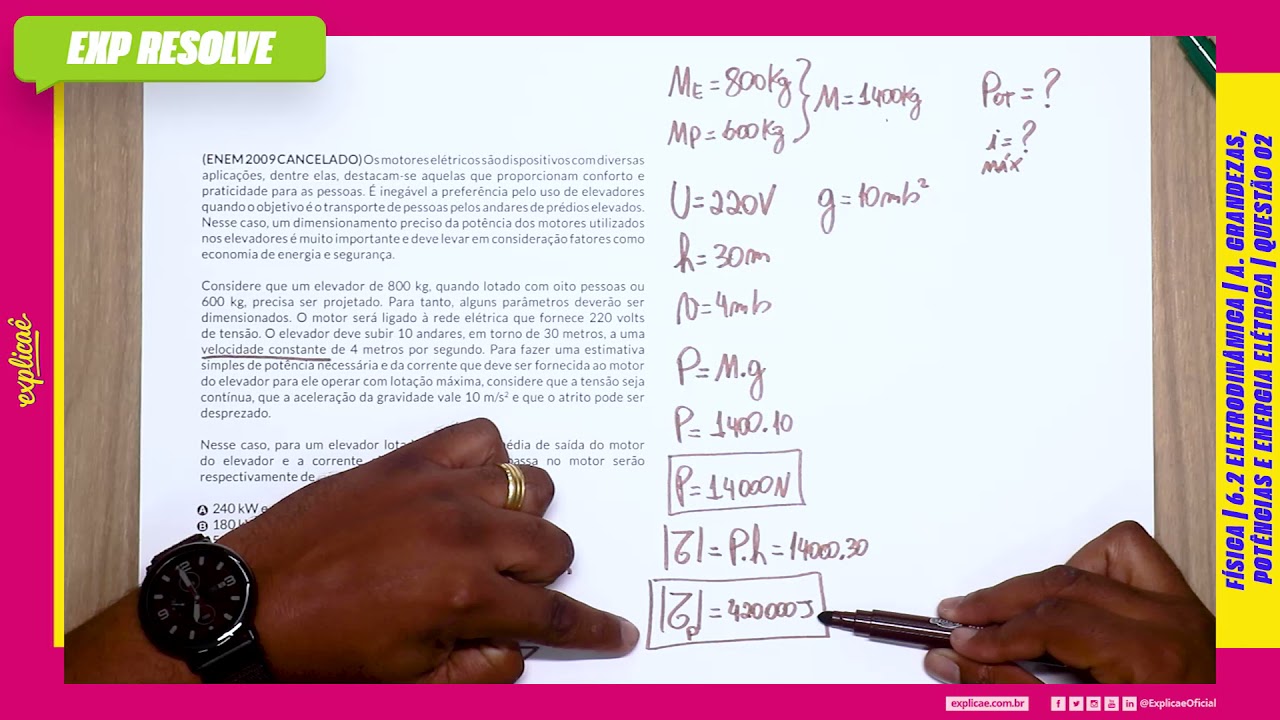 EXP RESOLVE
(ENEM 2009 CANCELADO) Os motores elétricos são dispositivos com diversas
aplicações, dentre elas, destacam-se aquelas que proporcionam conforto e
praticidade para as pessoas. É inegável a preferência pelo uso de elevadores
quando o objetivo é o transporte de pessoas pelos andares de prédios elevados.
Nesse caso, um dimensionamento preciso da potência dos motores utilizados
nos elevadores é muito importante e deve levar em consideração fatores como
economia de energia e segurança.
Considere que um elevador de 800 kg, quando lotado com oito pessoas ou
600 kg, precisa ser projetado. Para tanto, alguns parâmetros deverão ser
dimensionados. O motor será ligado à rede elétrica que fornece 220 volts
de tensão. O elevador deve subir 10 andares, em torno de 30 metros, a uma
velocidade constante de 4 metros por segundo. Para fazer uma estimativa
simples de potência necessária e da corrente que deve ser fornecida ao motor
do elevador para ele operar com lotação máxima, considere que a tensão seja
contínua, que a aceleração da gravidade vale 10 m/s² e que o atrito pode ser
desprezado.
Nesse caso, para um elevador lota média de saída do motor
do elevador e a corrente passa no motor serão
respectivamente de
A 240 kW e
B 180
ME = 800kg } M = 1400kg
MP = 600kg
U = 220V g = 10m/s²
h = 30m
v = 4m/s
P = M.g
P = 1400.10
P = 14000N
|τ| = P.h = 14000.30
|τp| = 420000J
Pot = ?
i = ?
MÁX
explicaê
FÍSICA | 6.2 ELETRODINÂMICA | A. GRANDEZAS,
POTÊNCIAS E ENERGIA ELÉTRICA | QUESTÃO 02
explicae.com.br @ExplicaeOficial